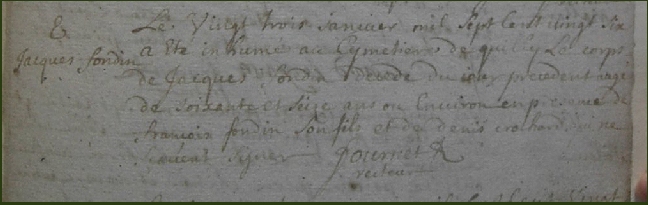 E
Jacques fondin
Le Vingt trois Janvier mil Sept Cent vingt Six
a Eté inhumé au Cymetiere de quilly Le corps
de Jacques fondin decedé du jour precedent agé
de Soixante et Seize ans ou Environ en presence de
francois fondin Son fils et de denis crochard qui ne
scavent signer
recteur